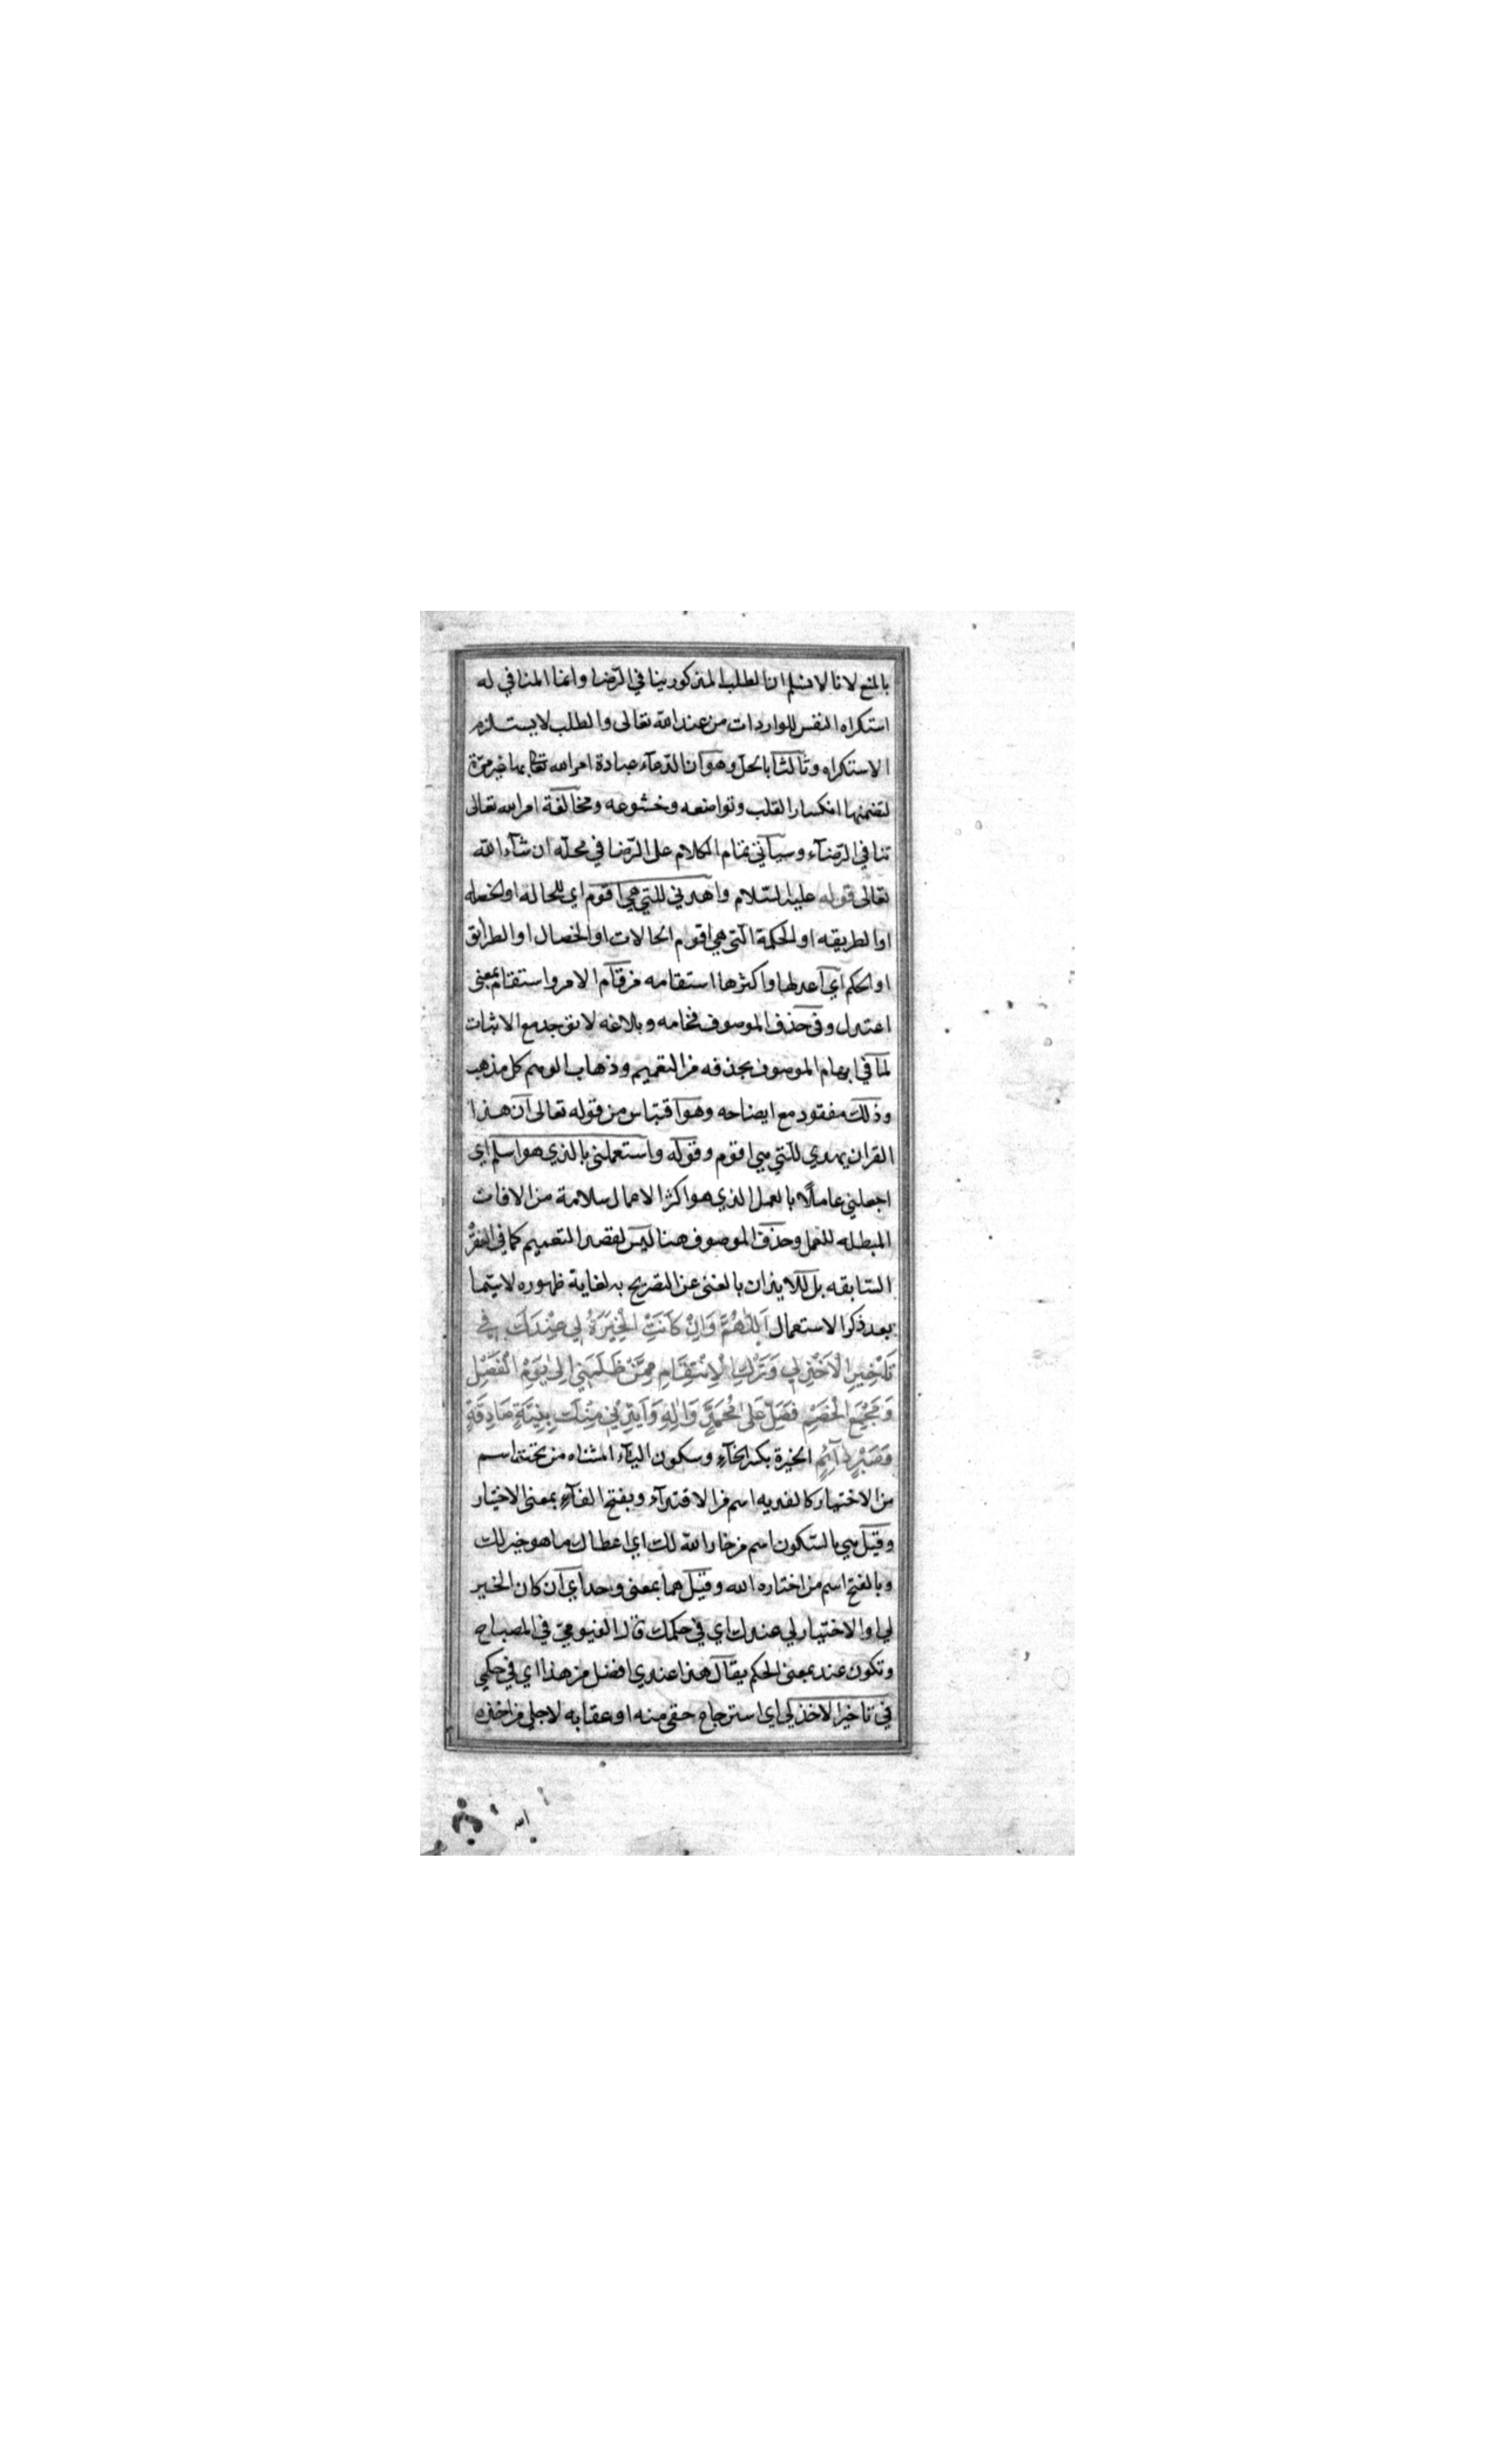 بالمنع لانا لا نسلم ان الطلب المذكور ينافي الرّضا وانما المنافي له
استكراه النفس للواردات من عند الله تعالى والطلب لا يستلزم
الاستكراه وثالثا بالحل وهو ان الدّعآء عبادة امر الله تعالى بها غير مرّة
لتضمنها انكسار القلب وتواضعه وخشوعه ومخالفة امر الله تعالى
تنافي الرّضآء وسيأتي تمام الكلام على الرّضا في محلّه ان شآء الله
تعالى قوله عليه السّلام واهدني للتي هي اقوم اي للحاله او الخصله
او الطريقه او الحكمة الّتي هي اقوم الحالات او الخصال او الطرايق
او الحكم اي اعدلها واكثرها استقامه من قام الامر واستقام بمعنى
اعتدل وفي حذف الموصوف فخامه وبلاغه لا توجد مع الاثبات
لما في ابهام الموصوف بحذفه من التعميم وذهاب الوهم كل مذهب
وذلك مفقود مع ايضاحه وهو اقتباس من قوله تعالى ان هذا
القران يهدي للّتي هي اقوم وقوله واستعملني بالذي هو اسلم اي
اجعلني عاملًا بالعمل الذي هو اكثر الاعمال سلامة من الافات
المبطله للعمل وحذف الموصوف هنا ليس لقصد التعميم كما في الفقرة
السّابقه بل للايذان بالغنى عن التصريح به لغاية ظهوره لا سيّما
بعد ذكر الاستعمال اَللّٰهُمَّ وَاِنْ كَانَتِ الْخِيَرَةُ لِي عِنْدَكَ فِي
تَاْخِيرِ الْاَخْذِ لِي وَتَرْكِ الْاِنْتِقَامِ مِمَّنْ ظَلَمَنِي اِلٰى يَوْمِ الْفَصْلِ
وَمَجْمَعِ الْخَصْمِ فَصَلِّ عَلٰى مُحَمَّدٍ وَاٰلِهِ وَاَيِّدْنِي مِنْكَ بِنِيَّةٍ صَادِقَةٍ
وَصَبْرٍ دَآئِمٍ الخيرة بكسر الخآء وسكون اليآء المثناه من تحت اسم
من الاختيار كالفديه اسم من الافتدآء وبفتح الفآء بمعنى الاختيار
وقيل هي بالسّكون اسم من خار الله لك اي اعطاك ما هو خير لك
وبالفتح اسم من اختاره الله وقيل هما بمعنى واحد اي ان كان الخير
لي او الاختيار لي عندك اي في حكمك قال الفيومي في المصباح
وتكون عند بمعنى الحكم يقال هذا عندي افضل من هذا اي في حكمي
في تاخير الاخذ لي اي استرجاع حقي منه او عقابه لاجلي من اخذه